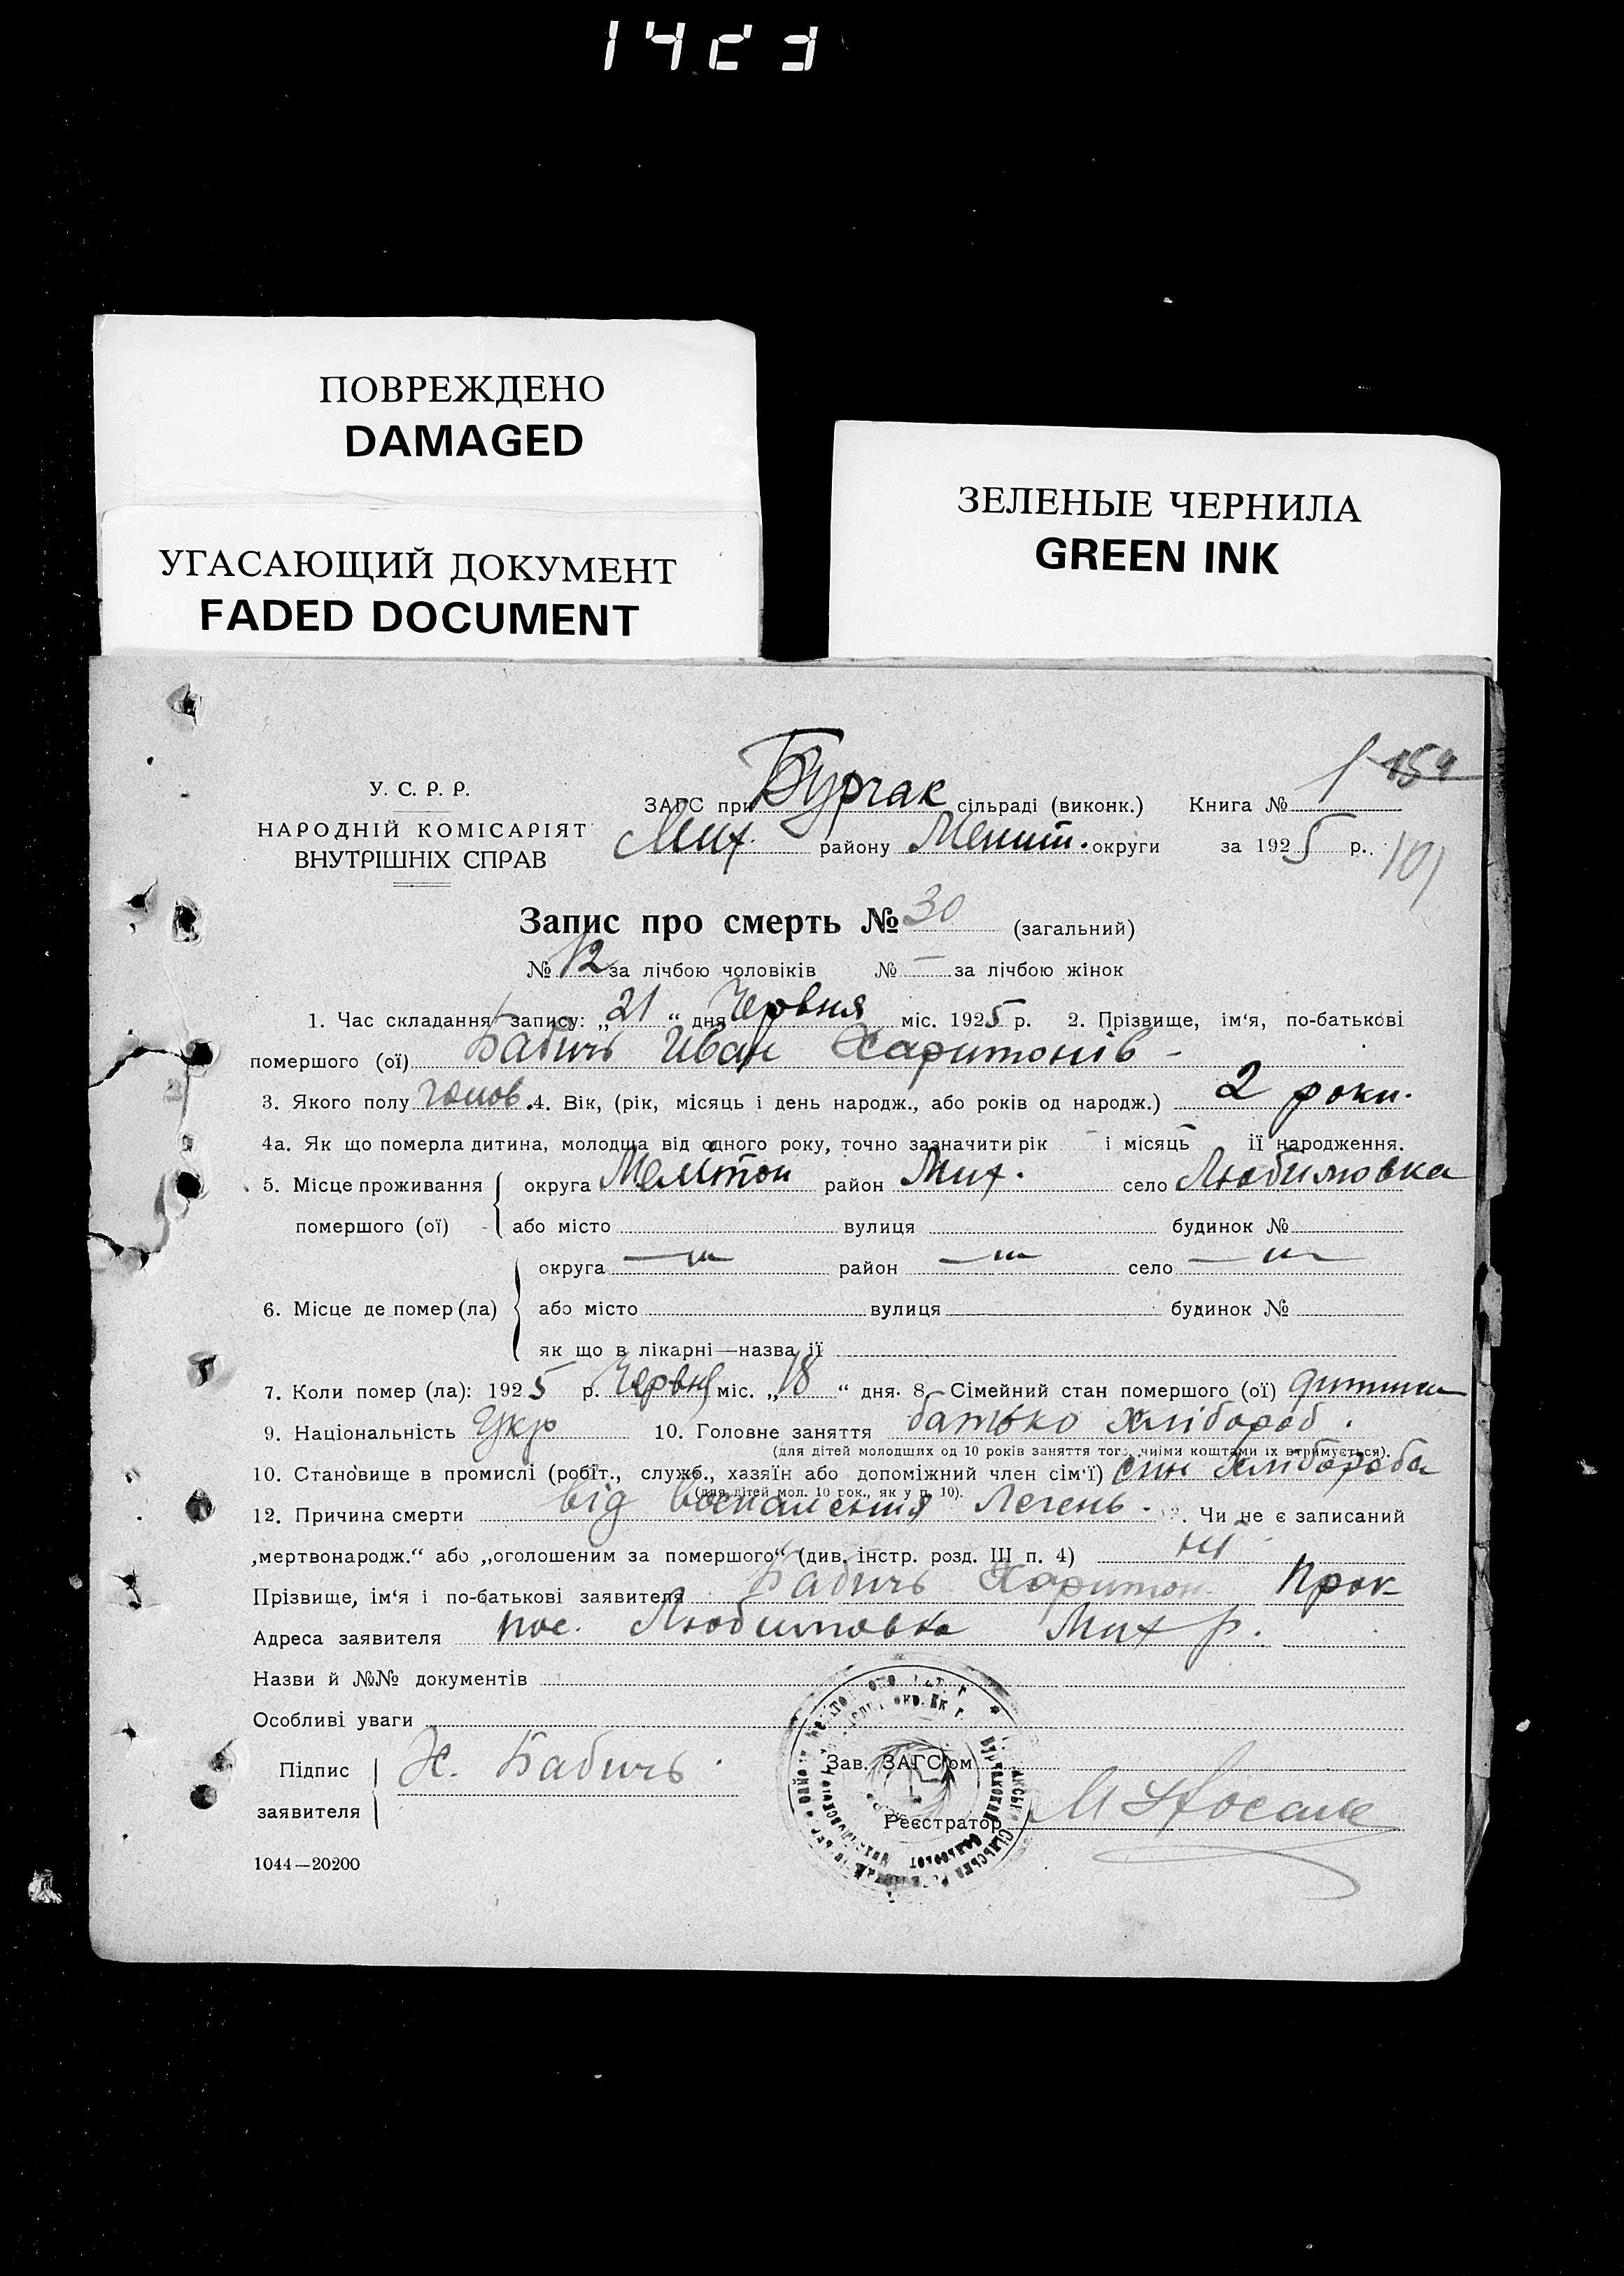 ПОВРЕЖДЕНО
DAMAGED
УГАСАЮЩИЙ ДОКУМЕНТ
FADED DOCUMENT
ЗЕЛЕНЫЕ ЧЕРНИЛА
GREEN INK
У. С. Р. Р.
НАРОДНІЙ КОМІСАРІЯТ
ВНУТРІШНІХ СПРАВ
ЗАГС при Бурчак сільраді (виконк.) Книга № 1
Мих. району Мелит. округи за 1925 р.
101
Запис про смерть № 30 (загальний)
№ 12 за лічбою чоловіків № — за лічбою жінок
1. Час складання запису: „21“ дня Червня міс. 1925 р. 2. Прізвище, ім‘я, по-батькові
помершого (ої) Бабичь Иван Харитонів -
3. Якого полу чолов. 4. Вік, (рік, місяць і день народж., або років од народж.) 2 роки.
4а. Як що померла дитина, молодша від одного року, точно зазначити рік - і місяць - її народження.
5. Місце проживання округа Мелітоп район Мих. село Любимовка
помершого (ої) або місто вулиця будинок №
округа —„— район —„— село —„—
6. Місце де помер (ла) або місто вулиця будинок №
як що в лікарні—назва її
7. Коли помер (ла): 1925 р. Червня міс. „18“ дня. 8. Сімейний стан помершого (ої) дитина
9. Національність Укр 10. Головне заняття батько хлібороб.
(для дітей молодших од 10 років заняття того, чиїми коштами їх втримується).
10. Становище в промислі (робіт., служб., хазяїн або допоміжний член сім‘ї) син хлібороба
(для дітей мол. 10 рок., як у п. 10).
12. Причина смерти від воспаления легень. 13. Чи не є записаний
„мертвонародж.“ або „оголошеним за помершого“ (див. інстр. розд. III п. 4) ні
Прізвище, ім‘я і по-батькові заявителя Бабичь Харитон Прок
Адреса заявителя пос. Любимовка Мих р.
Назви й №№ документів
Особливі уваги
Підпис
заявителя
Х. Бабичь
Зав. ЗАГС‘ом
Реєстратор
1044—20200